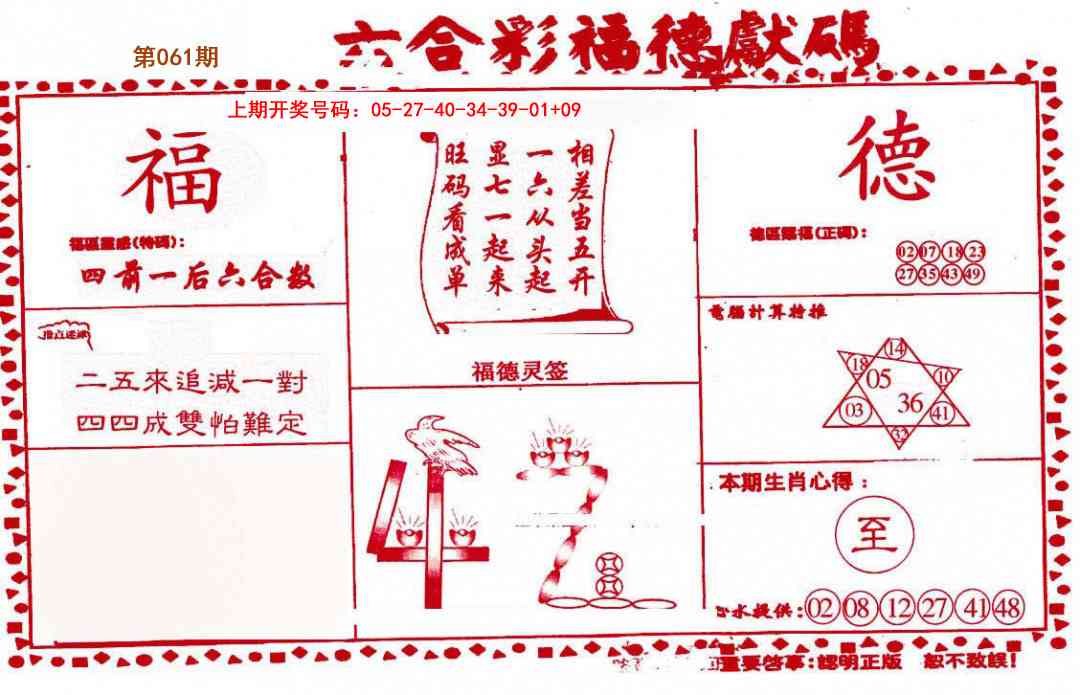 六合彩福德獻碼
第061期
上期开奖号码：05-27-40-34-39-01+09
福
福區靈感(特碼)：
四前一后六合数
二五來追減一對
四四成雙怕難定
相差当五开
一六从头起
显七一起来
旺码看成单
福德灵签
德
德區賜福(正碼)：
02 07 18 23
27 35 43 49
電腦計算特推
14
18 05 10
03 36 41
32
本期生肖心得：
至
心水提供：02 08 12 27 41 48
重要啓事：認明正版 恕不致誤！